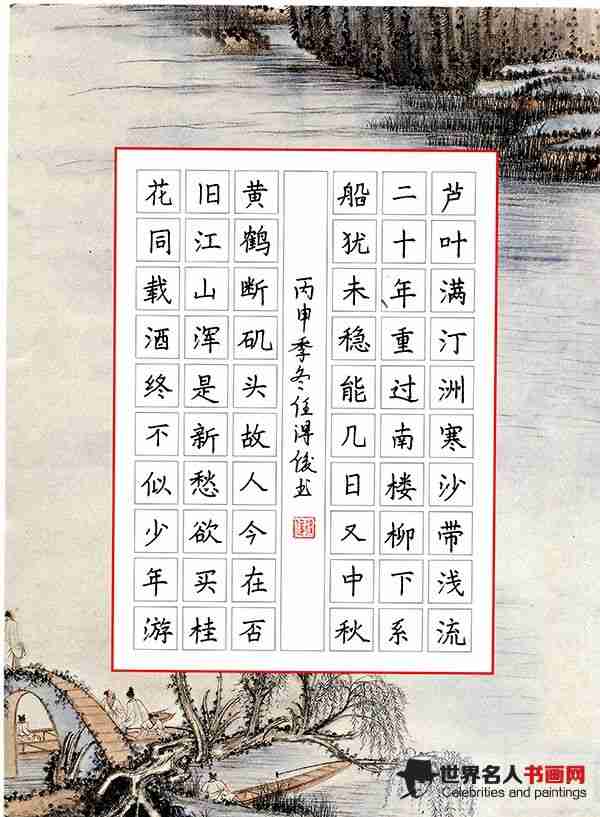 芦叶满汀洲寒沙带浅流
二十年重过南楼柳下系
船犹未稳能几日又中秋
丙申季冬任得俊书
黄鹤断矶头故人今在否
旧江山浑是新愁欲买桂
花同载酒终不似少年游
世界名人书画网
Celebrities and paintings